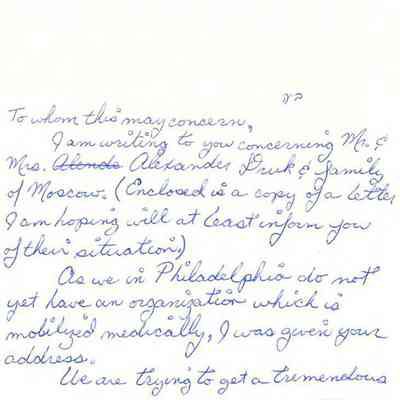 To whom this may concern,
I am writing to you concerning Mr. &
Mrs. Alexander Druk & family
of Moscow. (Enclosed is a copy of a letter
I am hoping will at least inform you
of their situation.)
As we in Philadelphia do not
yet have an organization which is
mobilized medically, I was given your
address.
We are trying to get a tremendous